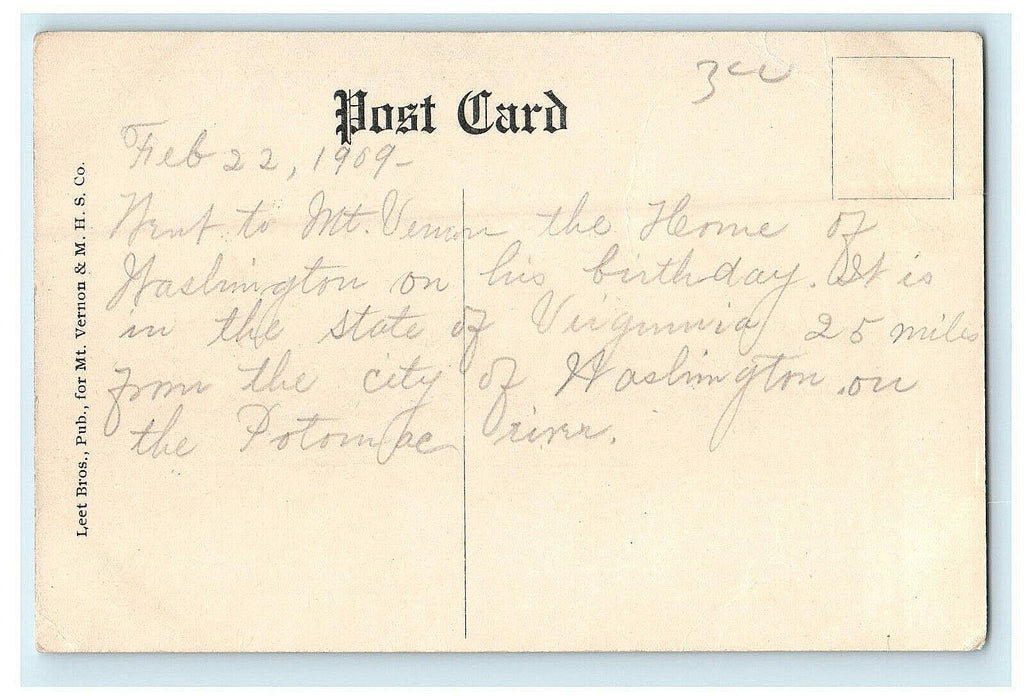 3⁰⁰
Post Card
Feb 22, 1909-
Went to Mt. Vernon the Home of
Washington on his birthday. It is
in the state of Virginnia 25 miles
from the city of Washington on
the Potomac river.
Leet Bros., Pub., for Mt. Vernon & M. H. S. Co.